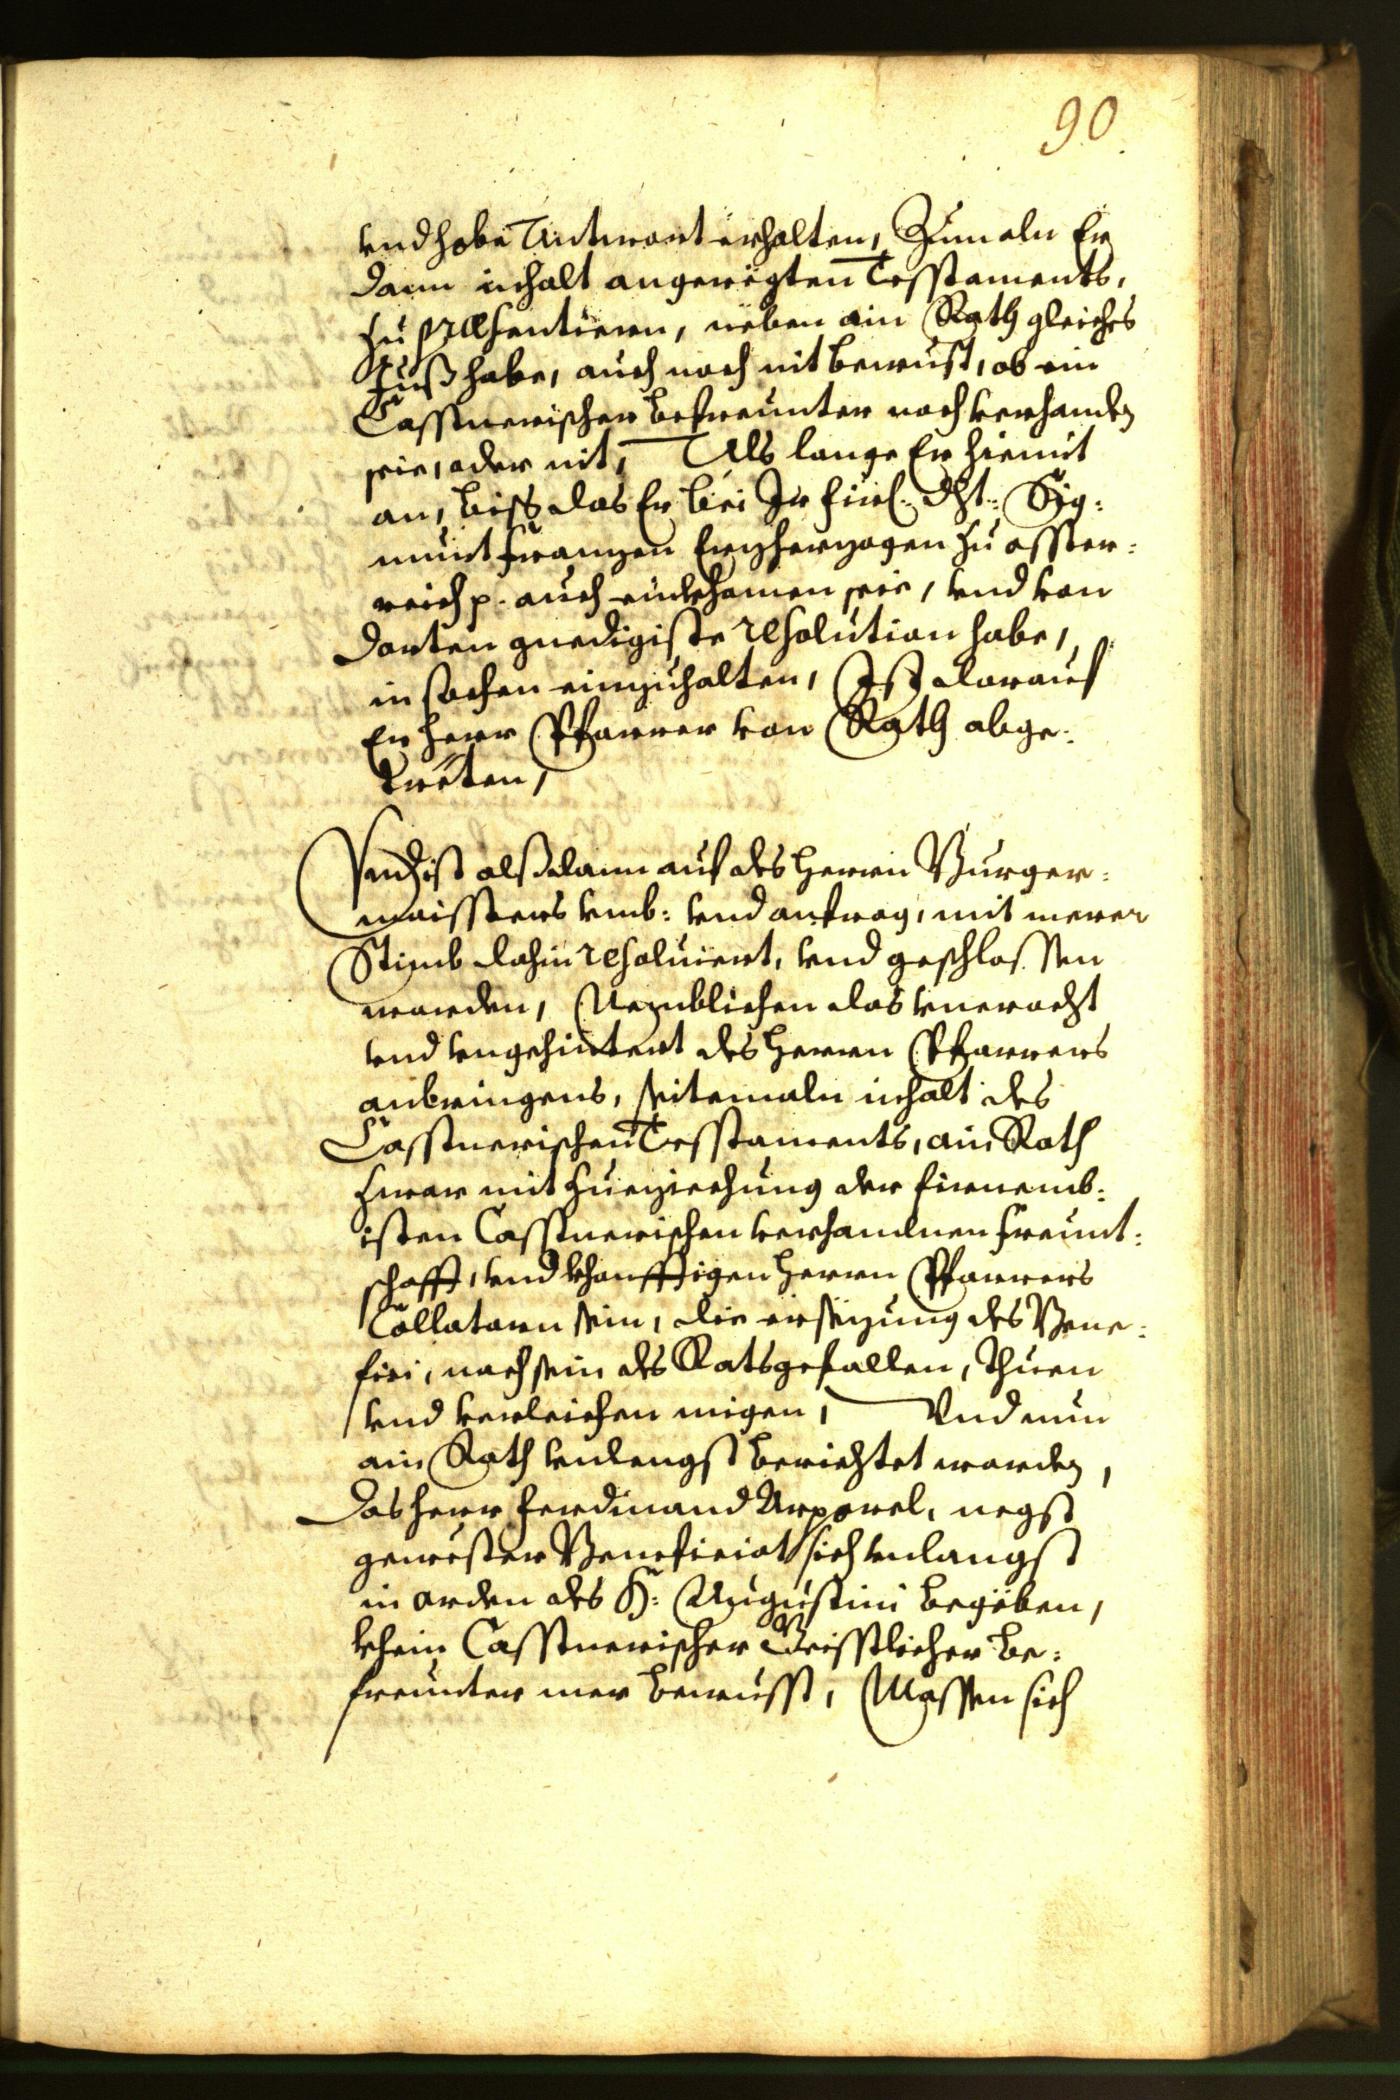 90.
vnd habe Antwort erhalten, Zumaln Er
dann inhalt angeregten Tesstaments,
zu præsentieren, neben ain Rath gleiches
Juß habe, auch noch nit bewust, ob ein
Casstnerischer befreunter noch verhanden
seie, oder nit, Als lange Er hiemit
an, biß das Er bei Ir fürl: dht: Sig:
munt Franzen Erzherzogen zu osster:
reich p. auch einkhomen seie, vnd von
dorten gnedigiste resolution habe,
in sachen einzuhalten, Ist darauf
Er Herr Pfarrer von Rath abge:
treten,
Vnd ist alßdann auf des Herrn Burger:
maissters vmb: vnd anfrag, mit merer
Stimb dahin resoluiert, vnd geschlossen
worden, Nemblichen das vneracht
vnd vngehintert des Herrn Pfarrers
anbringens, seitemaln inhalt des
Casstnerischen Tesstaments, ain Rath
zwar mit zueziechung der firnemb:
isten Casstnerischen verhandnen freunt:
schafft, vnd khonfftigen Herrn Pfarrers
Collatorn sein, die ersezung des Bene:
fici, nach sein des Ratsgefallen, thuen
vnd verleichen migen, Vnd nun
ain Rath vnlengst berichtet worden,
das Herr Ferdinand negst
gewester Beneficiat sich vnlangst
in orden des H: Augustini begeben,
khein Casstnerischer Geisstlicher be:
freunter mer bewusst, Massen sich